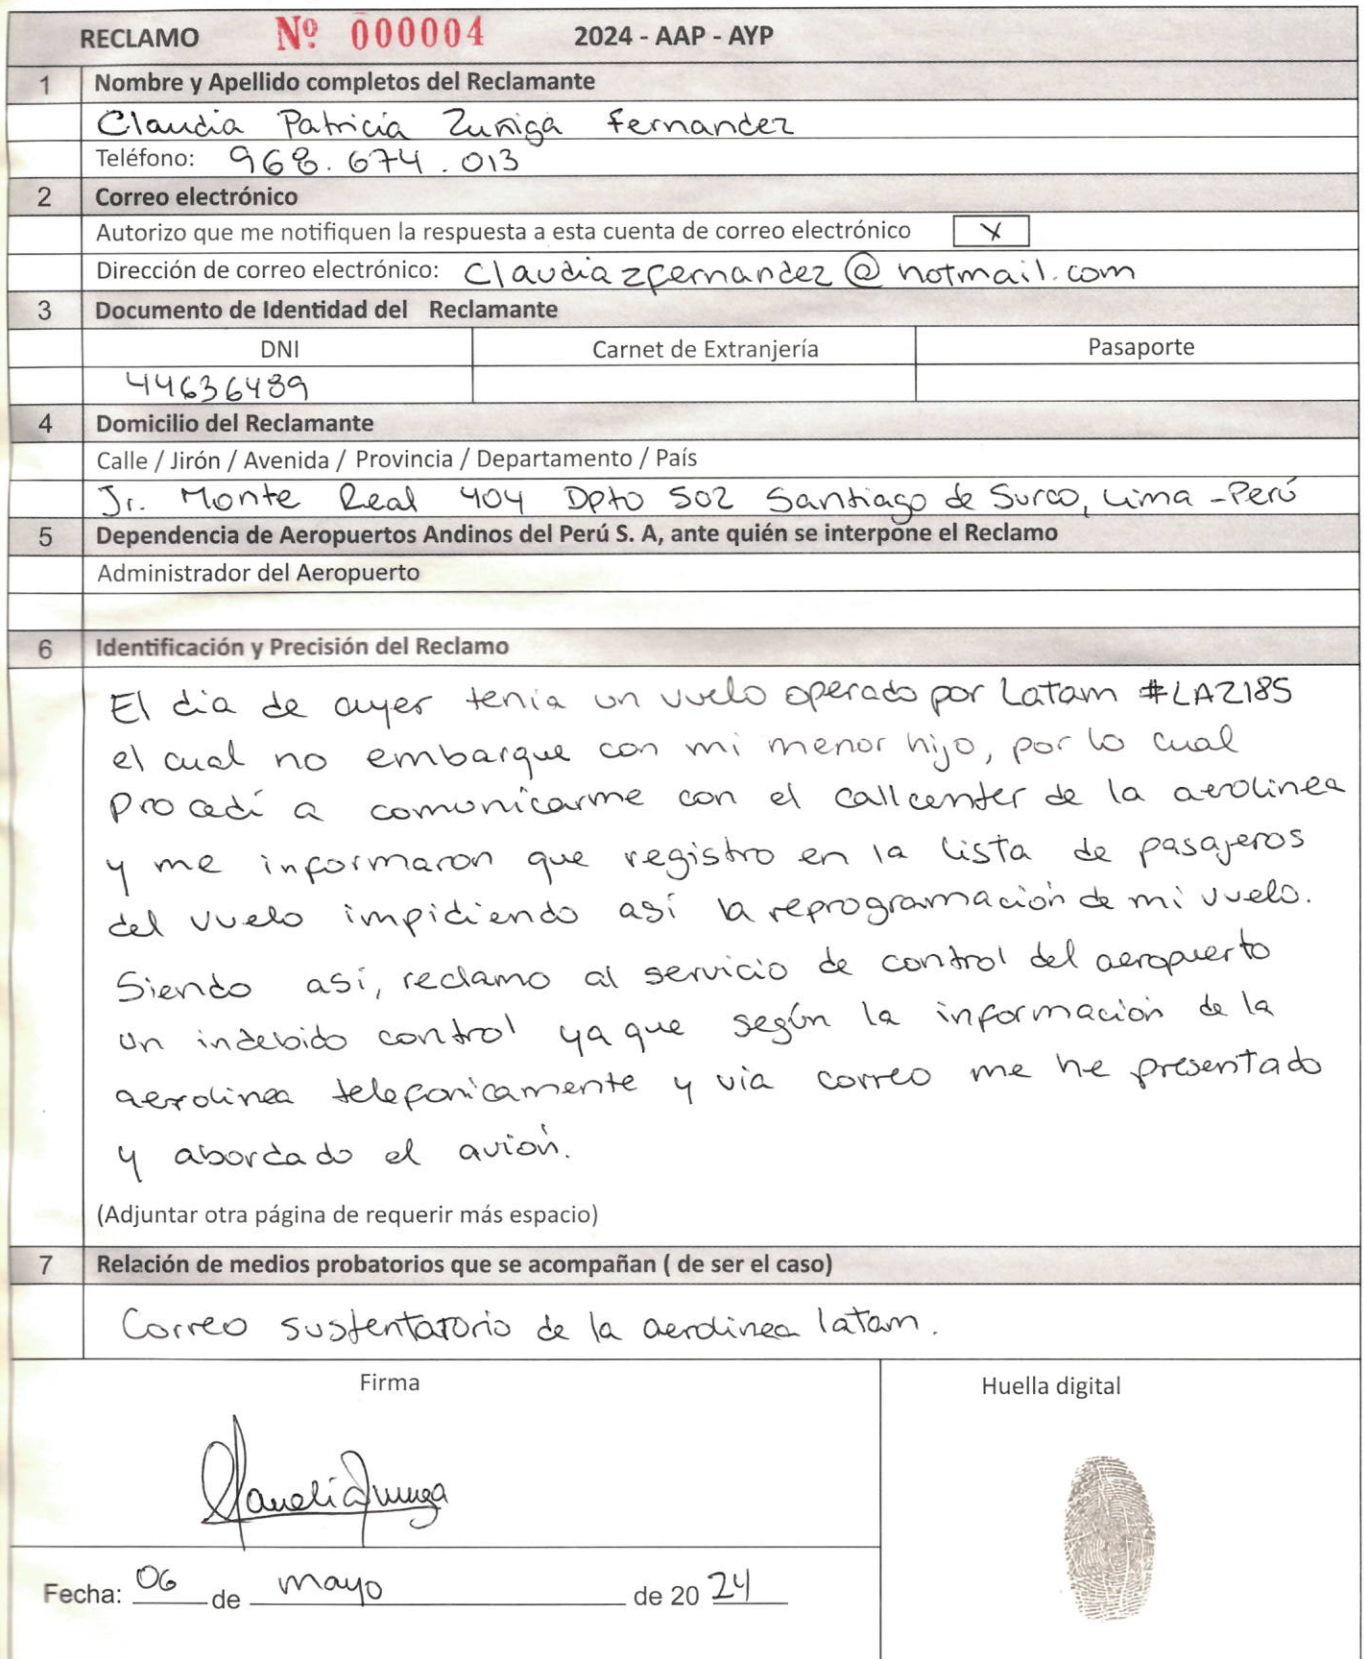 RECLAMO Nº 000004 2024 - AAP - AYP
1 Nombre y Apellido completos del Reclamante
Claudia Patricia Zuñiga Fernandez
Teléfono: 968.674.013
2 Correo electrónico
Autorizo que me notifiquen la respuesta a esta cuenta de correo electrónico X
Dirección de correo electrónico: Claudiazfernandez@hotmail.com
3 Documento de Identidad del Reclamante
DNI Carnet de Extranjería Pasaporte
44636489
4 Domicilio del Reclamante
Calle / Jirón / Avenida / Provincia / Departamento / País
Jr. Monte Real 404 Dpto 502 Santiago de Surco, Lima - Perú
5 Dependencia de Aeropuertos Andinos del Perú S. A, ante quién se interpone el Reclamo
Administrador del Aeropuerto
6 Identificación y Precisión del Reclamo
El dia de ayer tenia un vuelo operado por Latam #LA2185
el cual no embarque con mi menor hijo, por lo cual
procedí a comunicarme con el callcenter de la aerolinea
y me informaron que registro en la lista de pasajeros
del vuelo impidiendo así la reprogramación de mi vuelo.
Siendo así, reclamo al servicio de control del aeropuerto
un indebido control ya que según la información de la
aerolinea telefonicamente y via correo me he presentado
y abordado el avión.
(Adjuntar otra página de requerir más espacio)
7 Relación de medios probatorios que se acompañan ( de ser el caso)
Correo sustentatorio de la aerolinea latam.
Firma Huella digital
Fecha: 06 de mayo de 2024